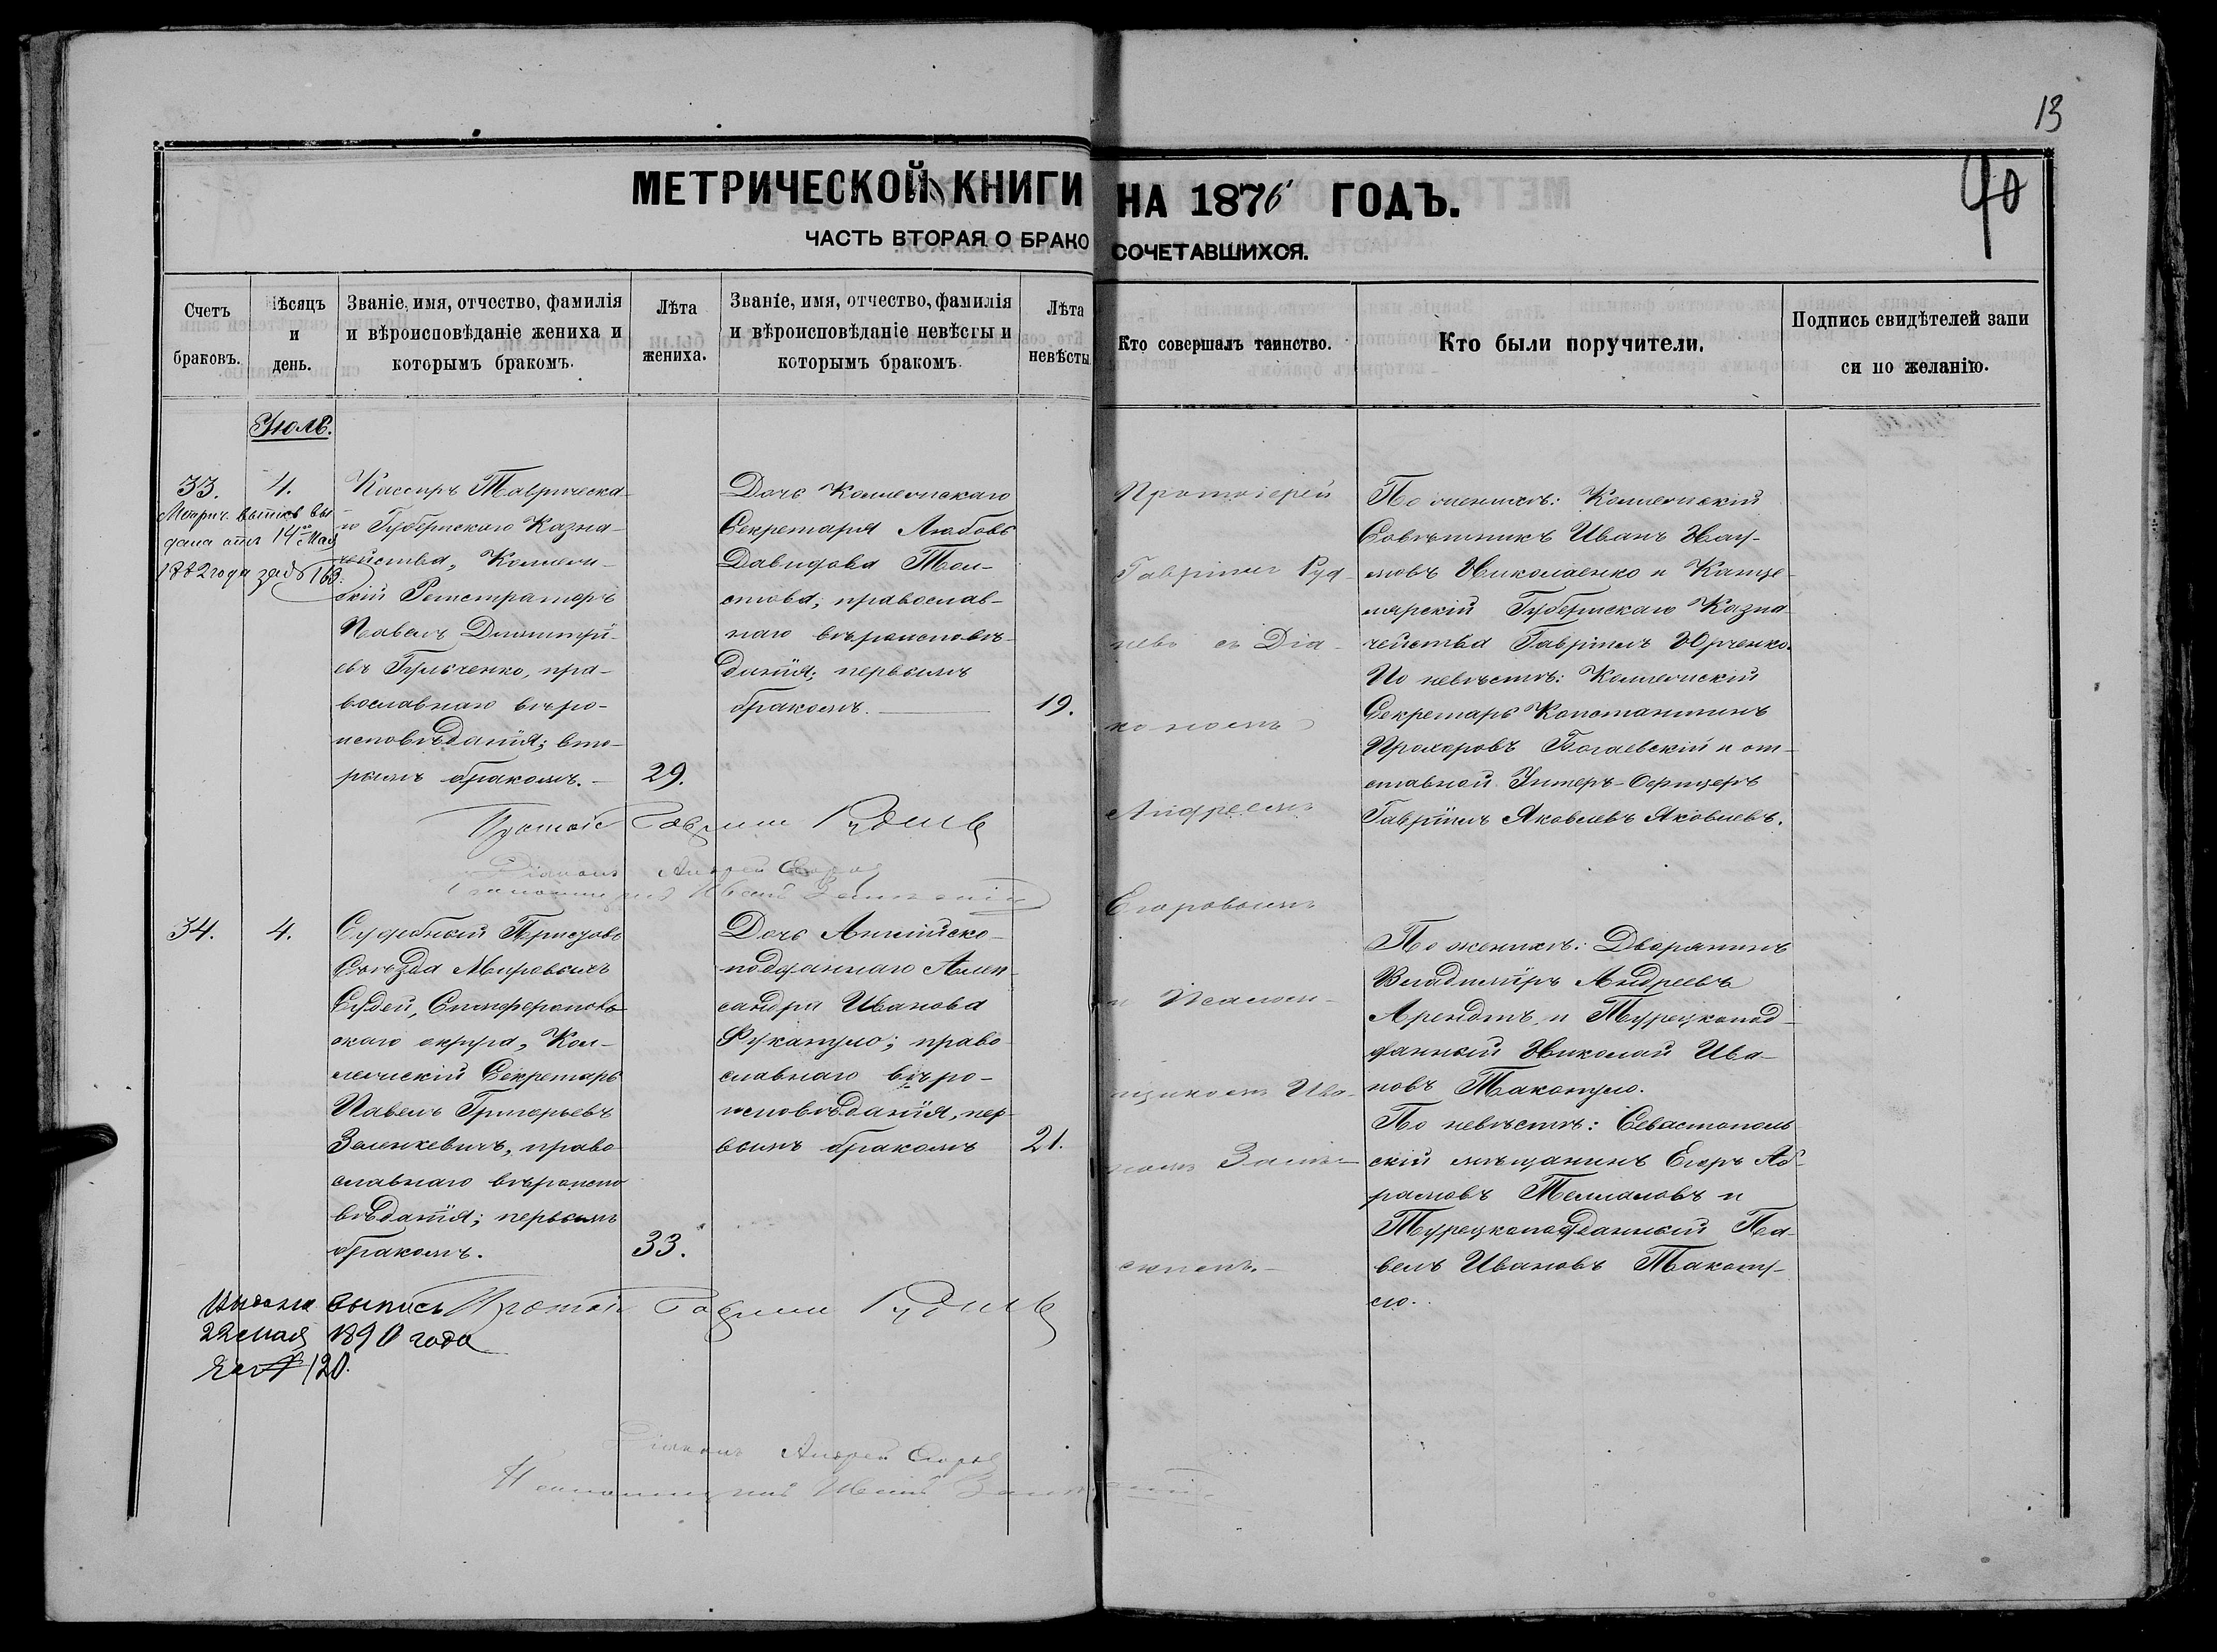 13
40
МЕТРИЧЕСКОЙ КНИГИ НА 1876 ГОДЪ.
ЧАСТЬ ВТОРАЯ О БРАКОСОЧЕТАВШИХСЯ.
Счетъ браковъ.
Мѣсяцъ и день.
Званіе, имя, отчество, фамилія
и вѣроисповѣданіе жениха и
которымъ бракомъ.
Лѣта жениха.
Званіе, имя, отчество, фамилія
и вѣроисповѣданіе невѣсты и
которымъ бракомъ.
Лѣта невѣсты
Кто совершалъ таинство.
Кто были поручители.
Подпись свидѣтелей запи
си по желанію.
Іюль.
33.
4.
Метрич. выпись вы
дана отъ 14го Мая
1882 года за № 163.
Кассиръ Тавричееска-
го Губернскаго Казна-
чейства, Коллеж-
скій Регистраторъ
Павелъ Димитрі-
евъ Бульченко, пра-
вославнаго вѣро-
исповѣданія; вто-
рымъ бракомъ.
29.
Дочь Коллежскаго
Секретаря Любовь
Давидова Тол-
стова; православ-
наго вѣроисповѣ-
данія; первымъ
бракомъ.
19.
Протоіерей
Гавріилъ Руд-
невъ съ Діа-
кономъ
Андреемъ
Егоровымъ
и Псалом-
щикомъ Ива-
номъ
По женихѣ: Коллежскій
Совѣтникъ Иванъ Нау-
мовъ Николаенко и Канце-
лярскій Губернскаго Казна
чейства Гавріилъ Юрченко.
По невѣстѣ: Коллежскій
Секретарь Константинъ
Прохоровъ Богаевскій и от-
ставной Унтеръ-Офицеръ
Гавріилъ Яковлевъ Яковлевъ.
Протоіе Гавріилъ Рудневъ
Діаконъ Андрей Егоровъ
34.
4.
Судебный Приставъ
Съѣзда Мировыхъ
Судей, Симферопольс
скаго округа, Кол-
лежскій Секретарь
Павелъ Григорьевъ
Зеленкевичъ, право
славнаго вѣроиспо
вѣданія; первымъ
бракомъ.
33.
Дочь Англійско-
подданнаго Алек-
сандра Иванова
право
славнаго вѣро-
исповѣданія, пер-
вымъ бракомъ
21.
По женихѣ: Дворянинъ
Владиміръ Андреевъ
Арендтъ, и Турецкопод-
данный Николай Ива-
новъ Такопуло.
По невѣстѣ: Севастополь
скій мѣщанинъ Егоръ Аб-
рамовъ и
Турецкоподданный Па-
велъ Ивановъ Такопу-
ло.
Выдана выпись
22 мая 1890 года
за № 120.
Протоіе Гавріилъ Рудневъ
Діаконъ Андрей Егоровъ